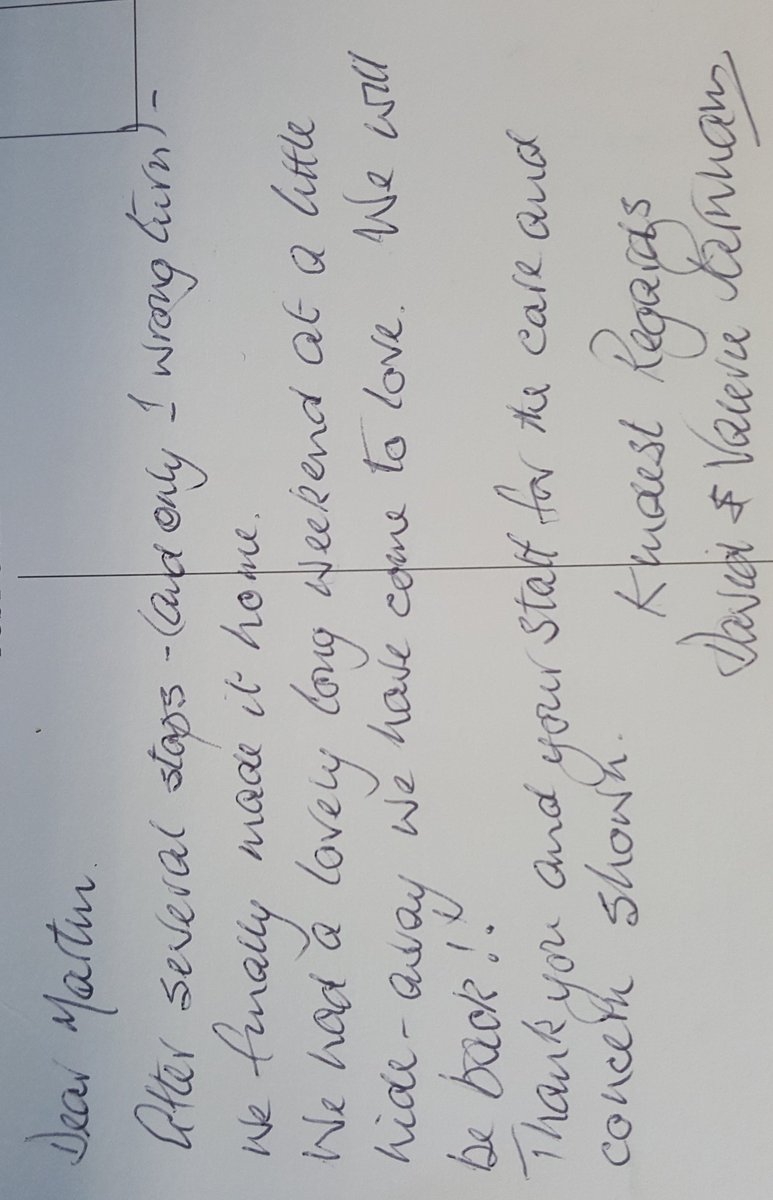 Dear Martin.
After several stops - (and only 1 wrong turn) -
we finally made it home.
We had a lovely long weekend at a little
hide-away we have come to love. We will
be back!!
Thank you and your staff for the care and
concern shown.
Kindest Regards
David & Valerie